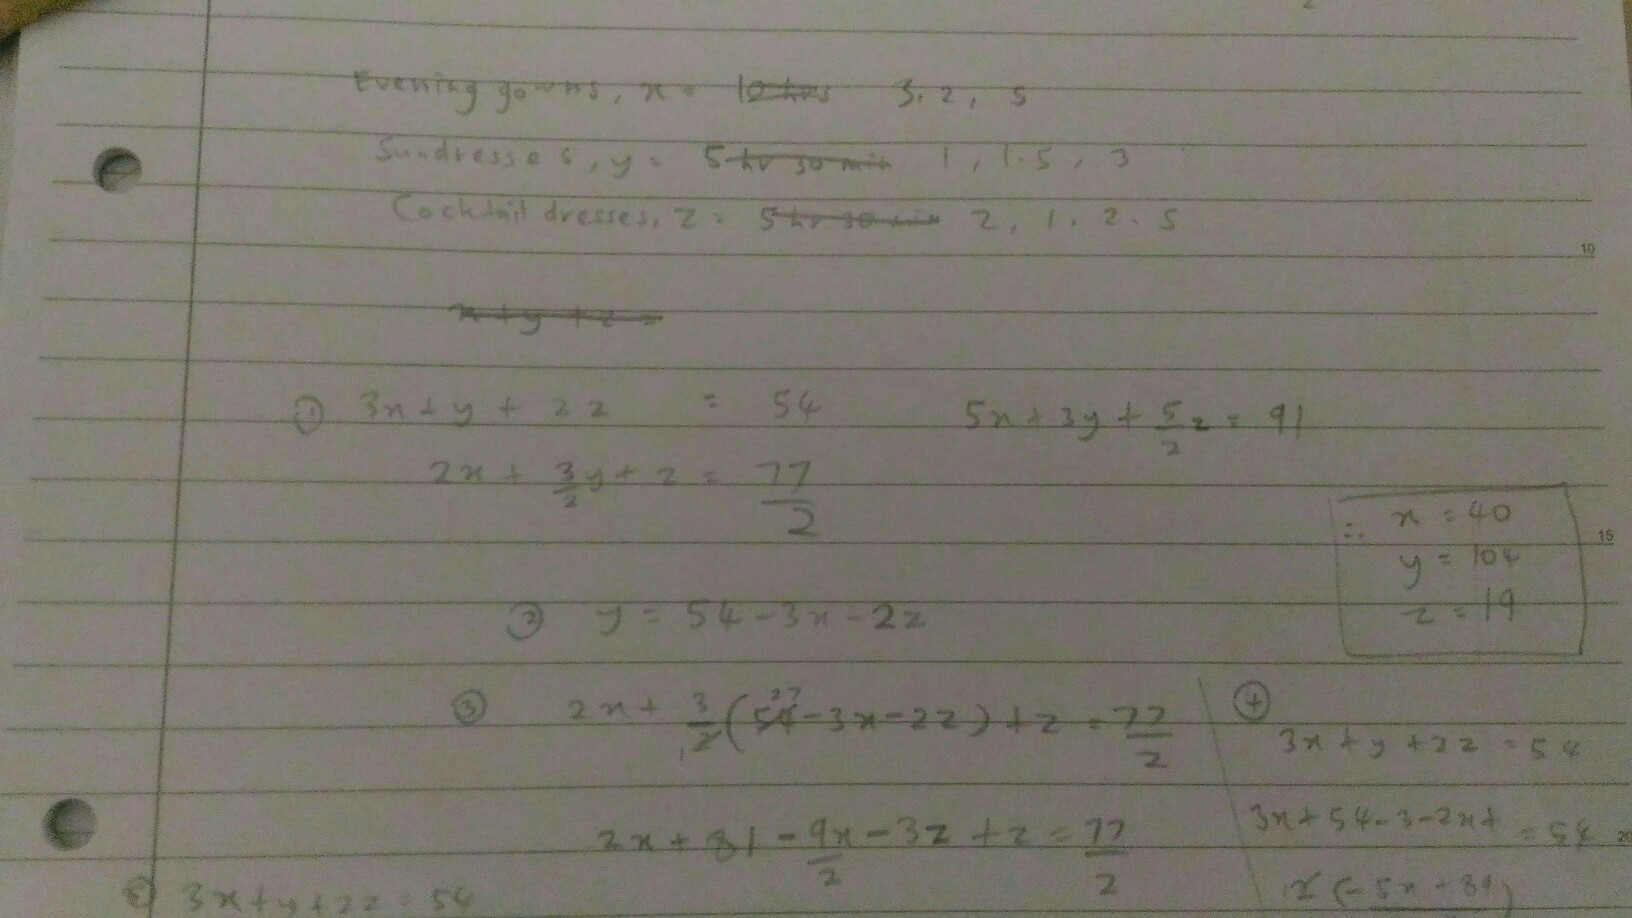 Evening gowns, x = 10 hrs 3. 2, 5
Sundresses, y = 5 hr 30 min 1, 1.5, 3
Cocktail dresses, z = 5 hr 30 min 2, 1. 2.5
10
x + y + z =
① 3x + y + 2z = 54 5x + 3y + 5/2 z = 91
2x + 3/2 y + z = 77/2
∴ x = 40
15
y = 104
z = 19
② y = 54 - 3x - 2z
③ 2x + 3/2 (54 - 3x - 2z) + z = 77/2
27
1
④
3x + y + 2z = 54
2x + 81 - 9x/2 - 3z + z = 77/2
3x + 54 - 3 - 2x + = 54
20
3x + y + 2z = 54